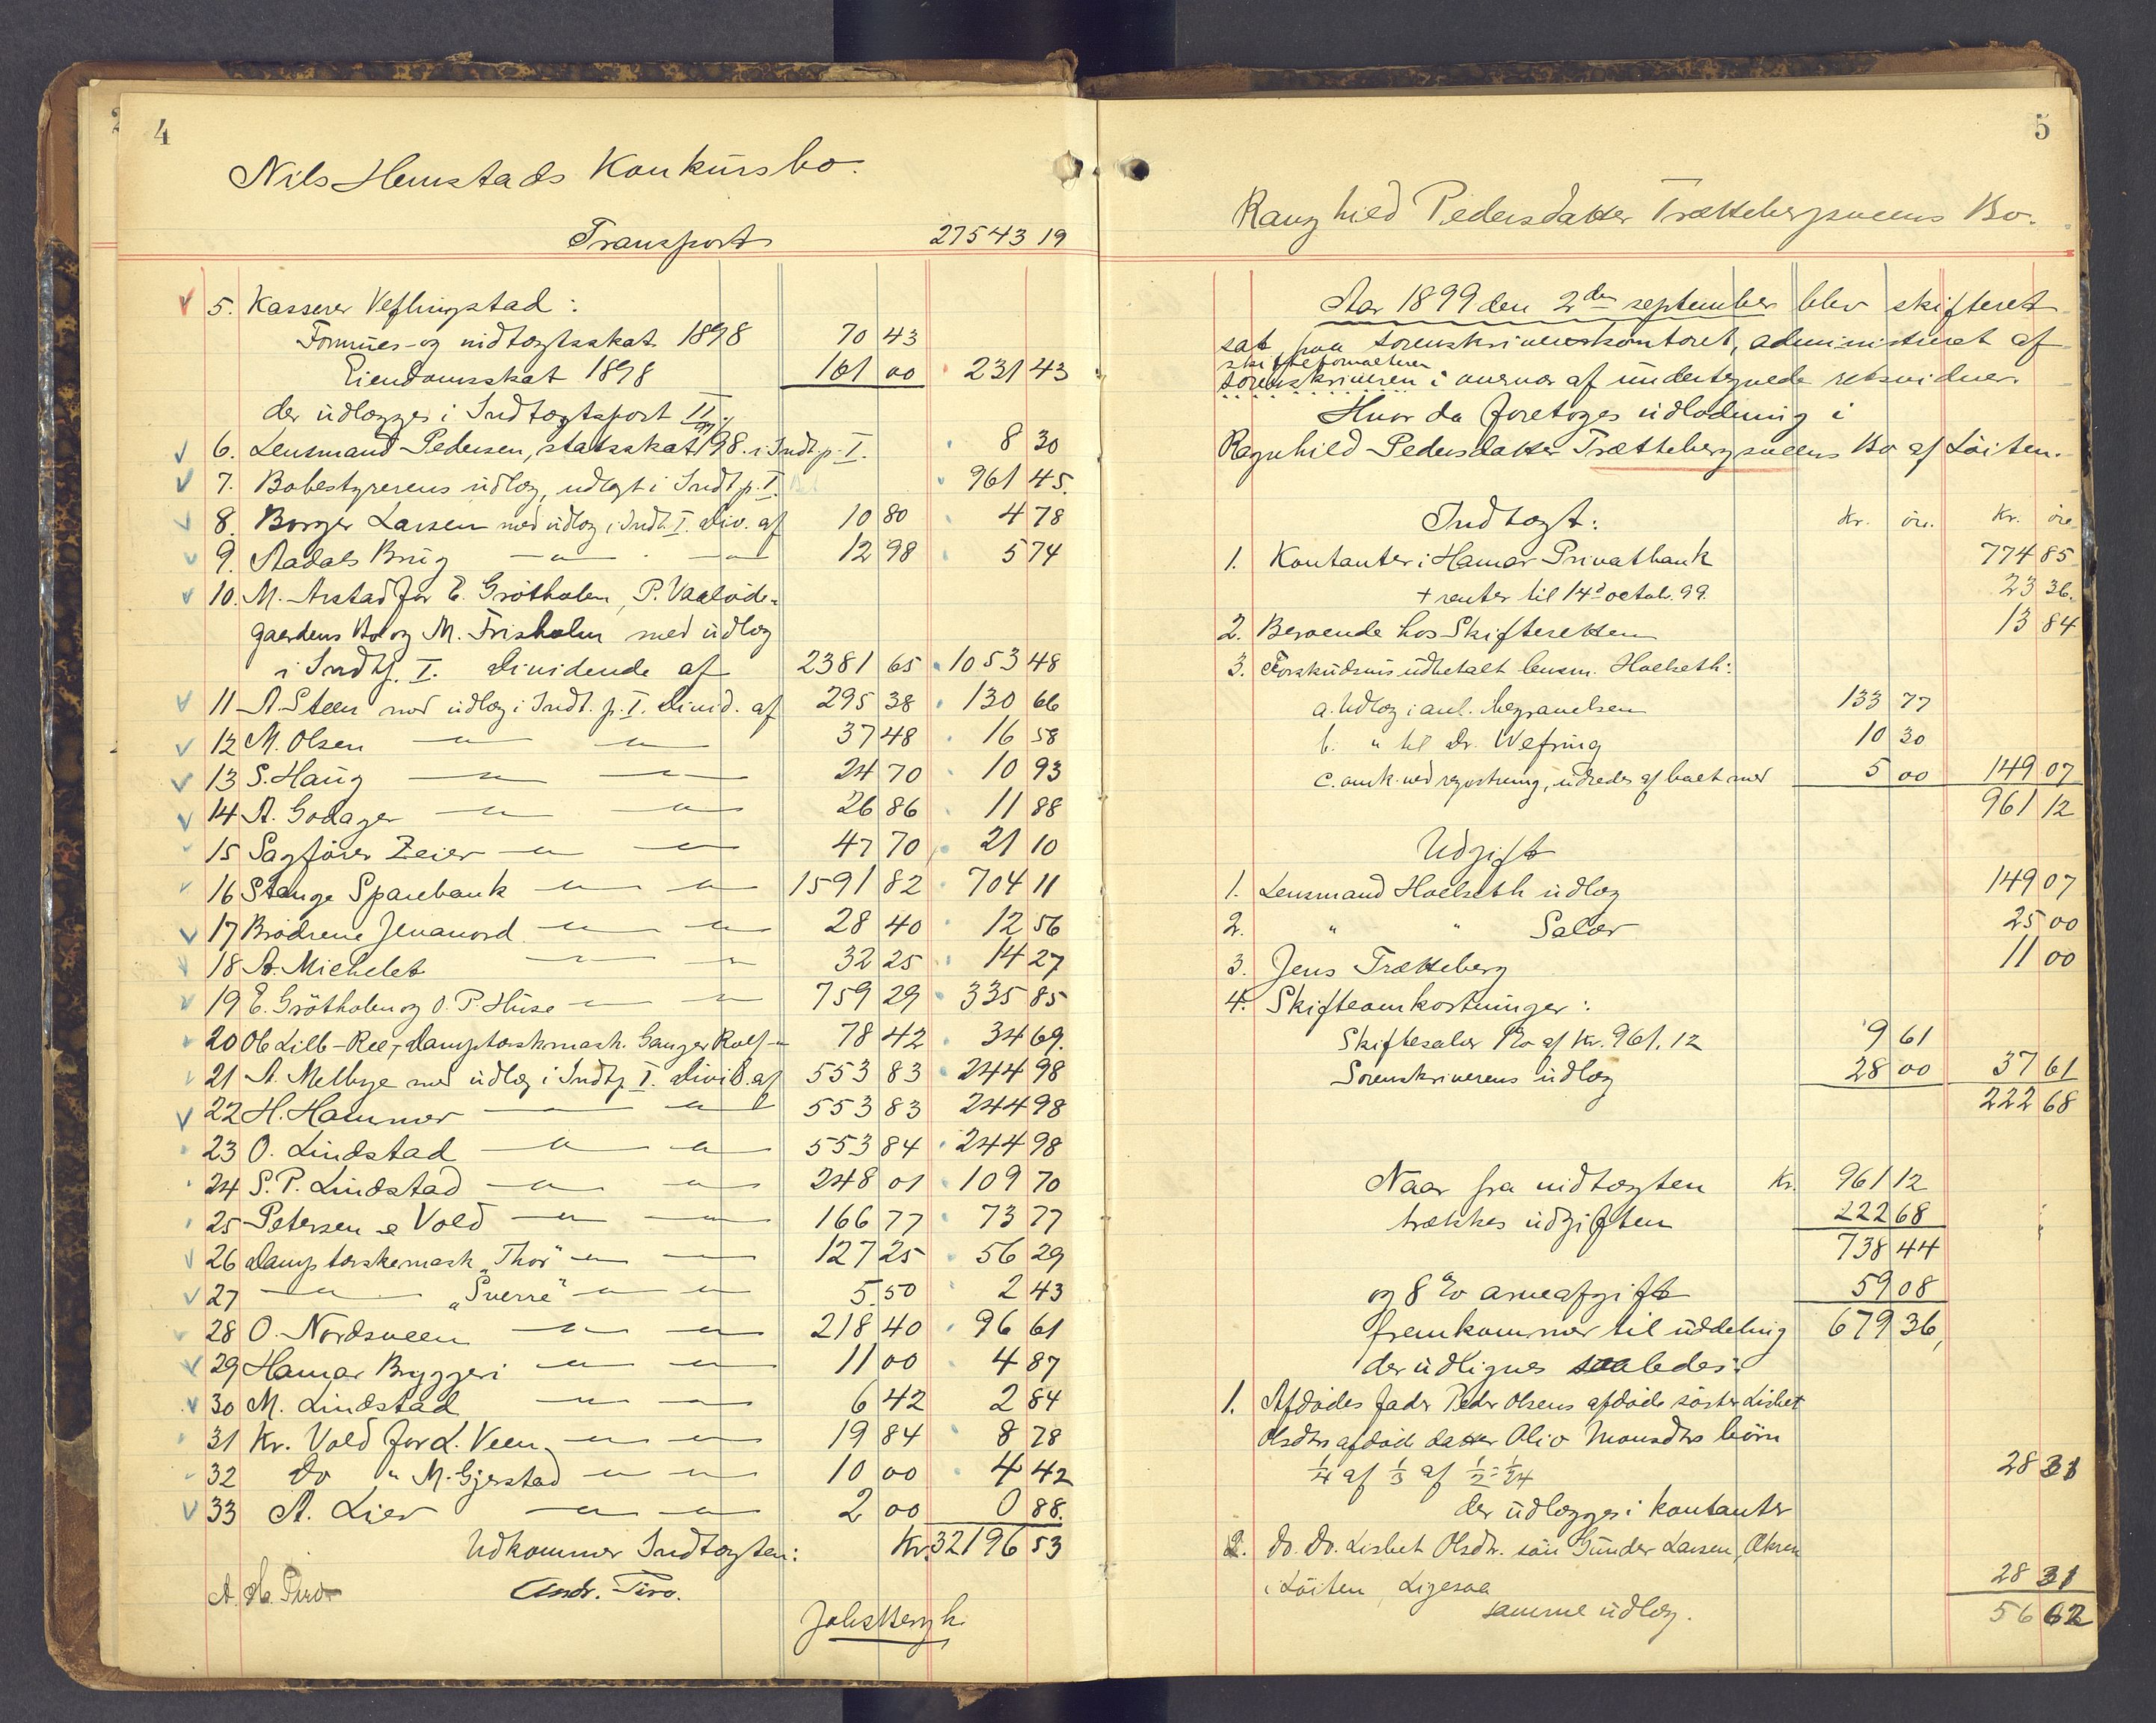 4
Nils Hemstads Konkursbo.
Transport 27543 19
5. Kasserer Veflingstad:
Formues- og indtægtsskat 1898 70 43
Eiendomsskat 1898 161 00 231 43
der udlægges i Indtægtspost II.
6. Lensmand Pedersen, statsskat 98. i Indt. p. I. 8 30
7. Bobestyrerens udlæg, udlagt i Indt. p. I. 961 45.
8. Borger Larsen med udlæg i Indt. I. div. af 10 80 4 78
9. Aadals Brug —"— —"— 12 98 5 74
10. M. Arstad for E. Grötholen, P. Vaalöde-
gaardens Bo og M. Frisholm med udlæg
i Indt. p. I. Dividende af 2381 65 1053 48
11 A. Steen med udlæg i Indt. p. I. Divid. af 295 38 130 66
12 M. Olsen —"— —"— 37 48 16 58
13 S. Haug —"— —"— 24 70 10 93
14 A. Godager —"— —"— 26 86 11 88
15 Sagförer Zeier —"— —"— 47 70 21 10
16 Stange Sparebank —"— —"— 1591 82 704 11
17 Brödrene Jevanord —"— —"— 28 40 12 56
18 A. Michelet —"— —"— 32 25 14 27
19 E. Grötholen og O. P. Huse —"— —"— 759 29 335 85
20 Ob Lilb-Ree, Damptærskemask. Ganger Rolf —"— 78 42 34 69.
21 A. Melbye med udlæg i Indt. p. I. Divid. af 553 83 244 98
22 H. Hammer —"— —"— 553 83 244 98
23 O. Lindstad —"— —"— 553 84 244 98
24 S. P. Lindstad —"— —"— 248 01 109 70
25 Petersen & Vold —"— —"— 166 77 73 77
26 Damptærskemask. „Thor" —"— —"— 127 25 56 29
27 —"— „Sverre" —"— —"— 5.50 2 43
28 O. Nordsveen —"— —"— 218 40 96 61
29 Hamar Bryggeri —"— —"— 11 00 4 87
30 M. Lindstad —"— —"— 6 42 2 84
31 Kr. Vold for L. Veen —"— —"— 19 84 8 78
32 Do " M. Gjerstad —"— —"— 10 00 4 42
33 A. Lier —"— —"— 2 00 0 88.
Udkommer Indtægten: Kr. 32196 53
Andr. Tiro.
Johs Bergh
5
Ragnhild Pedersdatter Trætteberg­sveens Bo.
Aar 1899 den 2den september blev skifteret
sat paa sorenskriverkontoret, administreret af
skifteforvalteren
sorenskriveren i overvær af undertegnede retsvidner.
Hvor da foretoges udlodning i
Ragnhild Pedersdatter Trættebergsveens Bo af Löiten.
Indtægt: Kr. öre. Kr. öre
1. Kontanter i Hamar Privatbank 774 85
+ renter til 14de octob. 99. 23 36.
2. Beroende hos Skifteretten 13 84
3. Forskudsvis udbetalt lensm. Hoelseth:
a. Udlæg i anl. begravelsen 133 77
b. " til Dr. Wefring 10 30
c. omk. ved registrering, udredes af boet med 5 00 149 07
961 12
Udgift
1. Lensmand Hoelseth udlæg 149 07
2. " " Salær 25 00
3. Jens Trætteberg 11 00
4. Skifteomkostninger:
Skiftesalær 1% af Kr. 961.12 9 61
Sorenskriverens udlæg 28 00 37 61
222 68
Naar fra indtægten Kr. 961 12
trækkes udgiften 222 68
738 44
og 8 % arveafgift 59 08
fremkommer til uddeling 679 36,
der udlignes saaledes:
1. Afdödes fader Peder Olsens afdöde söster Lisbet
Olsdtrs afdöde datter Olia Monsdtrs börn
1/4 af 1/3 af 1/2 = 1/24 28 31
der udlægges i kontanter
2. Do. Do. Lisbet Olsdtr. sön Gunder Larsen,
i Löiten, Ligesaa 28 31
samme udlæg. 56 62